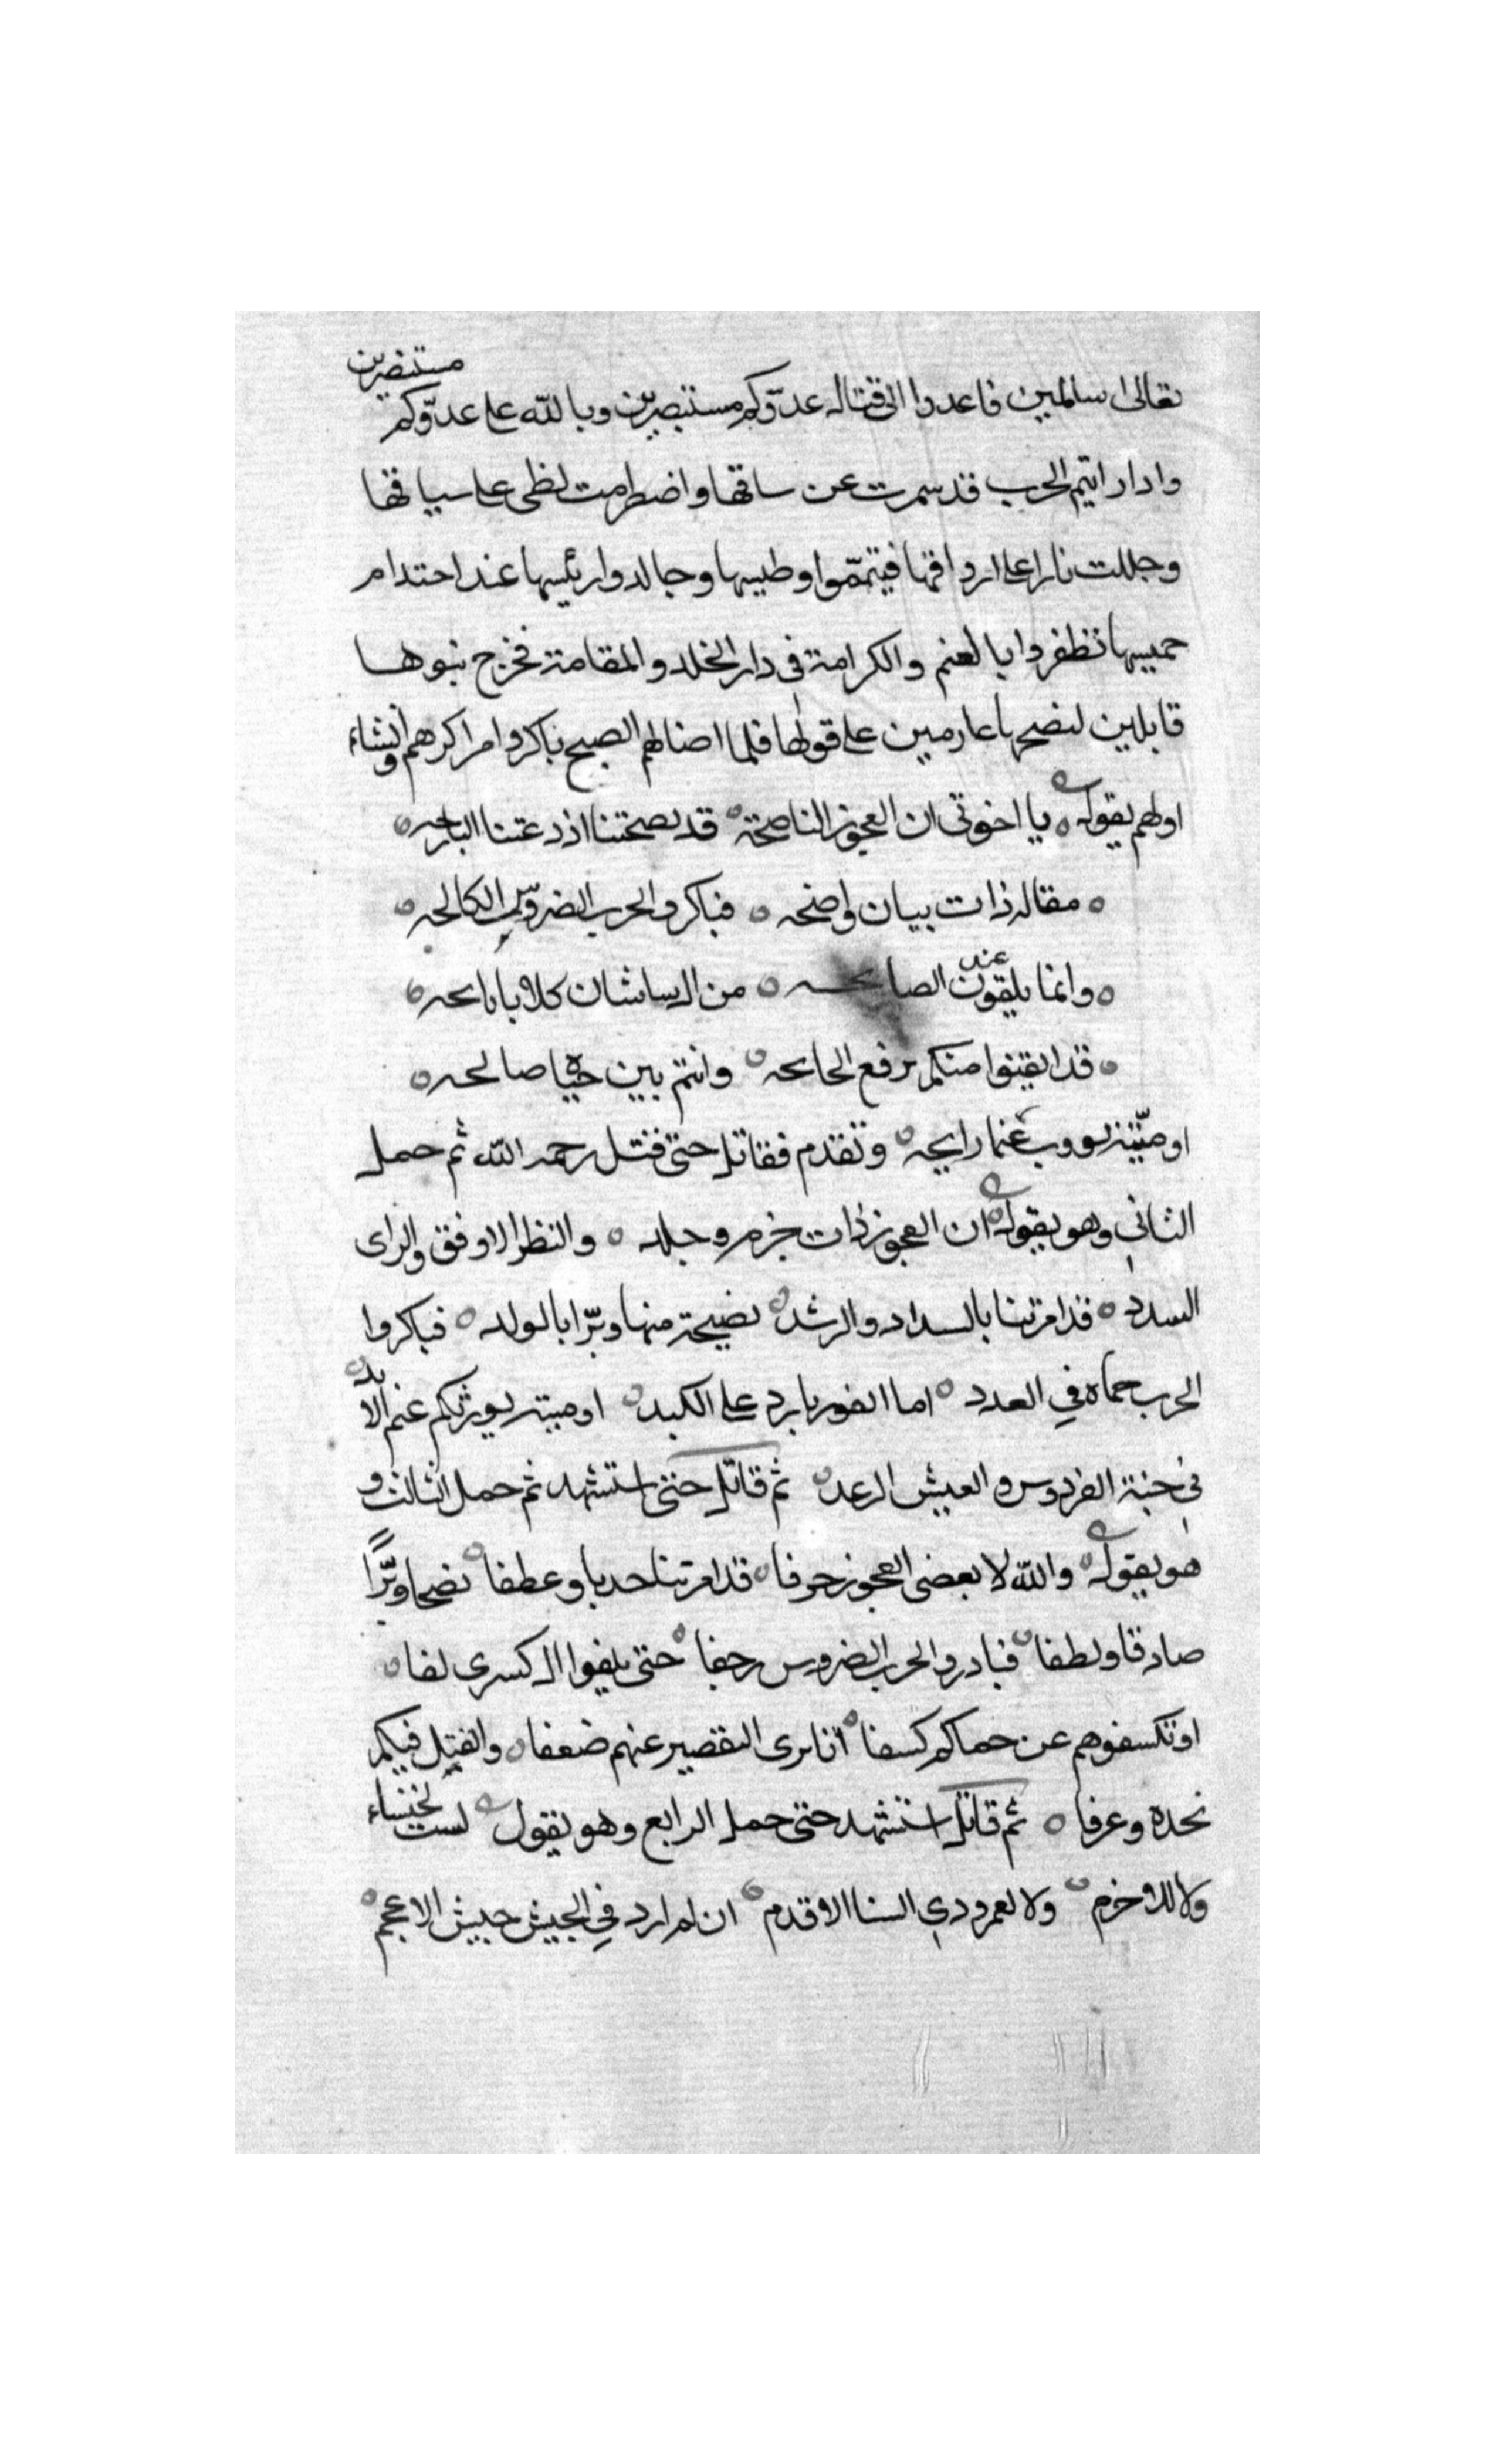 تعالى سالمين فاعدوا الى قتال عدوّكم مستبصرين وبالله على عدوّكم مستنصرين
واذا رايتم الحرب قد سمرت عن ساقها واضطرمت لظى على سياقها
وجللت نارا على ارواقها فيتمّموا وطيسها وجالدوا رئيسها عند احتدام
حميسها تظفروا بالغنم والكرامة في دار الخلد والمقامة فخرج بنوها
قابلين لنصحها عازمين على قولها فلما اضا لهم الصبح باكروا مراكزهم وانشاء
اولهم يقول يا اخوتي ان العجوز الناصحة قد نصحتنا اذ دعتنا البارحه
مقالة ذات بيان واضحه فباكروا الحرب الضروس الكالحه
وانما يلقون عند الصايحه من ال ساسان كلابا نابحه
قد ايقنوا منكم برفع الجايحه وانتم بين حياة صالحه
او ميّتة تورث غنما رابحه وتقدم فقاتل حتى قتل رحمه الله ثم حمل
الثاني وهو يقول ان العجوز ذات حزم وجلد والنظر الاوفق والراى
السدد قد امرتنا بالسداد والرشد نصيحة منها وبرّا بالولد فباكروا
الحرب حماه في العدد اما الفوز بارد على الكبد او ميتة تورثكم غنم الابد
في جنة الفردوس والعيش الرغد ثم قاتل حتى استشهد ثم حمل الثالث و
هو يقول والله لا نعصى العجوز حرفا قد امرتنا حدبا وعطفا نصحا وبرّاً
صادقا ولطفا فبادروا الحرب الضروس زحفا حتى تلفوا ال كسرى لفا
او تكسفوهم عن حماكم كسفا انا نرى التقصير عنهم ضعفا والقتل فيكم
نجدة وعرفا ثم قاتل استشهد حتى حمل الرابع وهو يقول لست لخنساء
ولا للاخرم ولا لعمرو دي السنا الاقدم ان لم ارد في الجيش جيش الاعجم